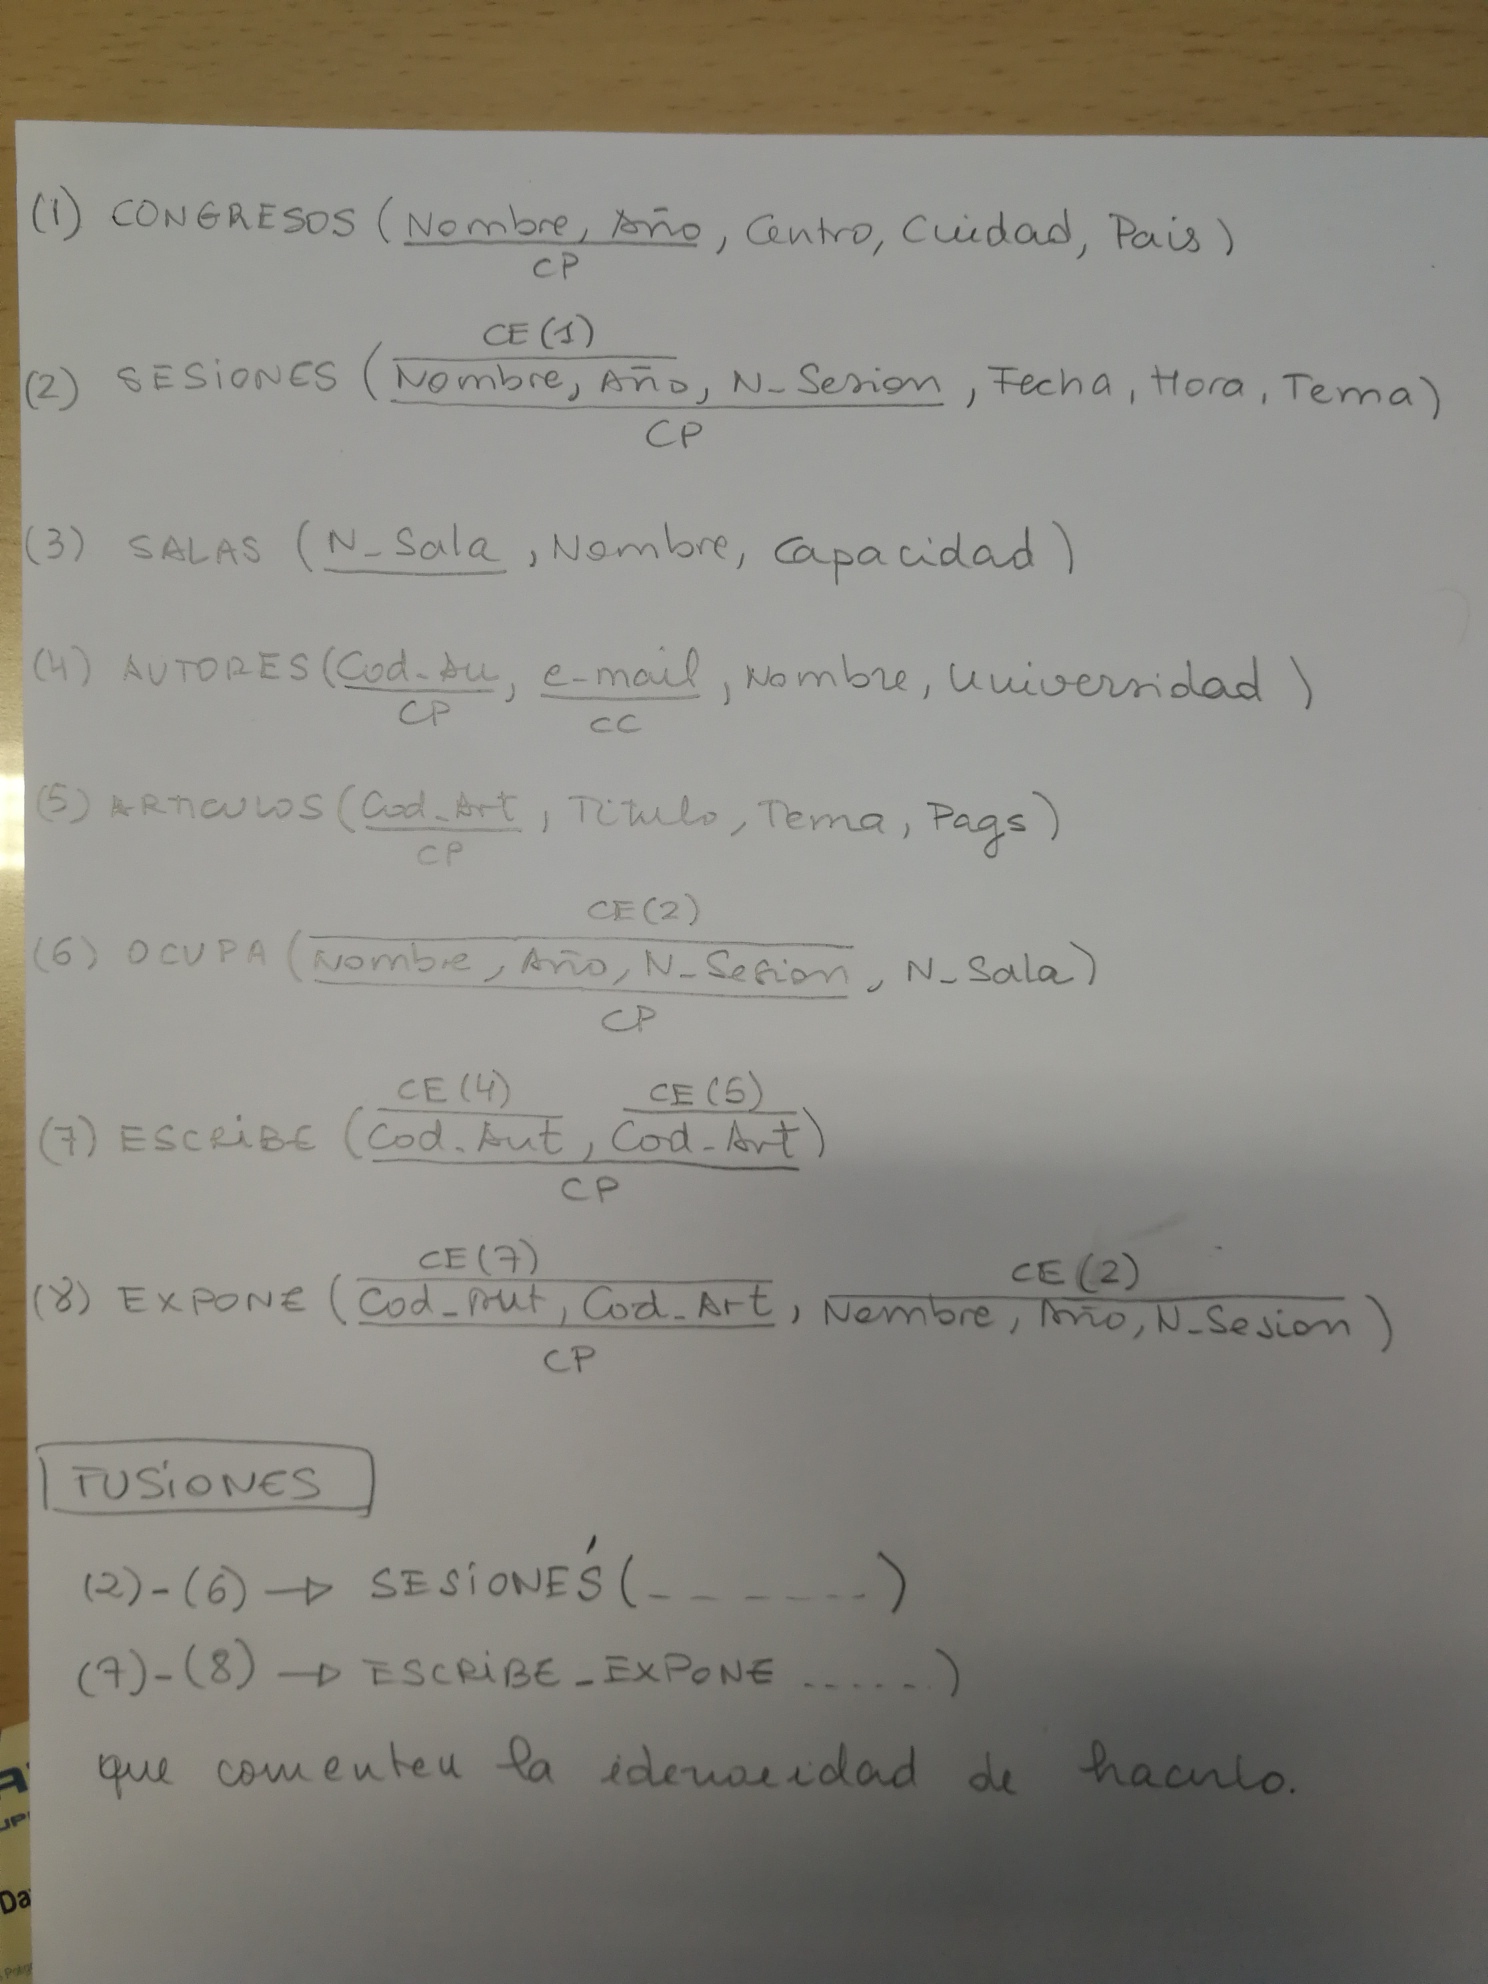 (1) CONGRESOS (Nombre, Año, Centro, Cuidad, Pais)
CP
CE(1)
(2) SESIONES (Nombre, Año, N_Sesion, Fecha, Hora, Tema)
CP
(3) SALAS (N_Sala, Nombre, Capacidad)
(4) AUTORES (Cod_Au, e-mail, Nombre, Universidad)
CP CC
(5) ARTICULOS (Cod_Art, Titulo, Tema, Pags)
CP
CE(2)
(6) OCUPA (Nombre, Año, N_Sesion, N_Sala)
CP
CE(4) CE(5)
(7) ESCRIBE (Cod_Aut, Cod_Art)
CP
CE(7) CE(2)
(8) EXPONE (Cod_Aut, Cod_Art, Nombre, Año, N_Sesion)
CP
FUSIONES
(2)-(6) → SESIONES' (_ _ _ _ _ _ _)
(7)-(8) → ESCRIBE_EXPONE ......)
que comenten la de hacerlo.
Da